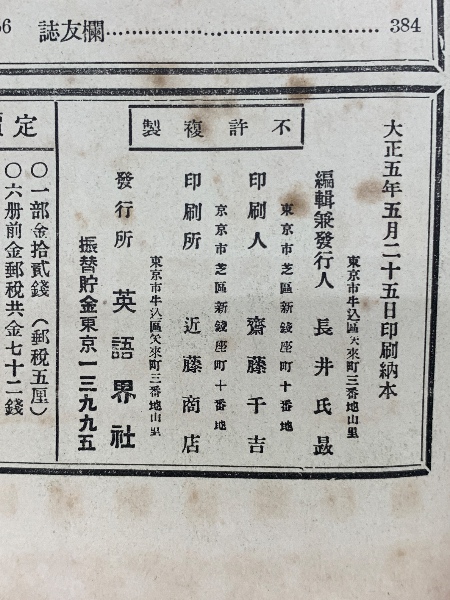 誌友欄 384
大正五年五月二十五日印刷納本
不許複製
東京市牛込區矢來町三番地山里
編輯兼發行人 長井氏晸
東京市芝區新錢座町十番地
印刷人 齋藤千吉
京京市芝區新錢座町十番地
印刷所 近藤商店
東京市牛込區矢來町三番地山里
發行所 英語界社
振替貯金東京一三九九五
定
〇一部金拾貳錢（郵稅五厘）
〇六册前金郵稅共金七十二錢